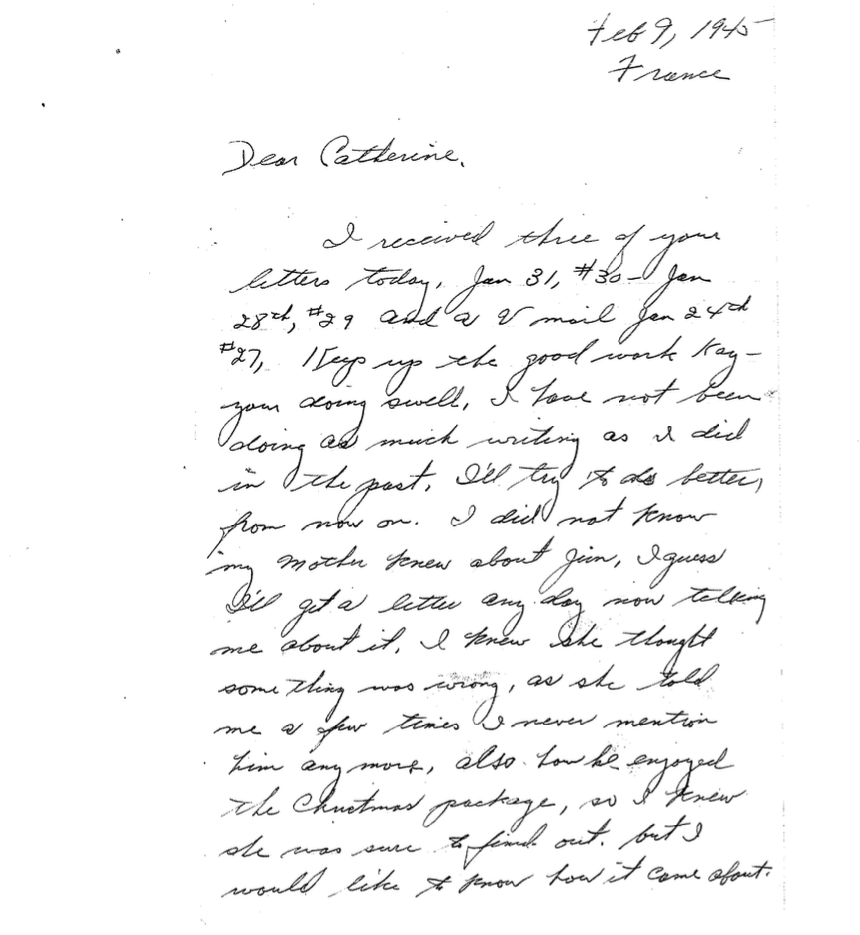 Feb 9, 1945
France
Dear Catherine,
I received three of your
letters today, Jan 31, #30 - Jan
28th, #29 and a V mail Jan 24th
#27, Keep up the good work Kay -
your doing swell, I have not been
doing as much writing as I did
in the past, I'll try to do better,
from now on. I did not know
my mother knew about Jim, I guess
I'll get a letter any day now telling
me about it, I knew she thought
something was wrong, as she told
me a few times I never mention
him any more, also how he enjoyed
the Christmas package, so I knew
she was sure to find out. but I
would like to know how it came about.